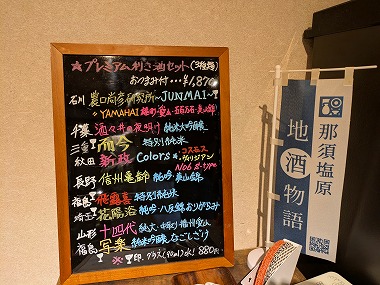 ★プレミアム利き酒セット(3種類)
おつまみ付・・・¥1,870
石川 農口尚彦研究所〜JUNMAI〜
〃 YAMAHAI
千葉 酒々井の夜明け 純米大吟醸
三重 而今 特別純米
秋田 新政 Colors コスモス
No6
長野 信州亀齢 純吟・美山錦
福島 飛露喜 特別純米
埼玉 花陽浴 純吟・八反錦おりがらみ
山形 十四代 純大・中取り
福島 写楽 純米吟醸なごしざけ
印、グラス(90ml)OK! 880円
那須塩原
地酒物語